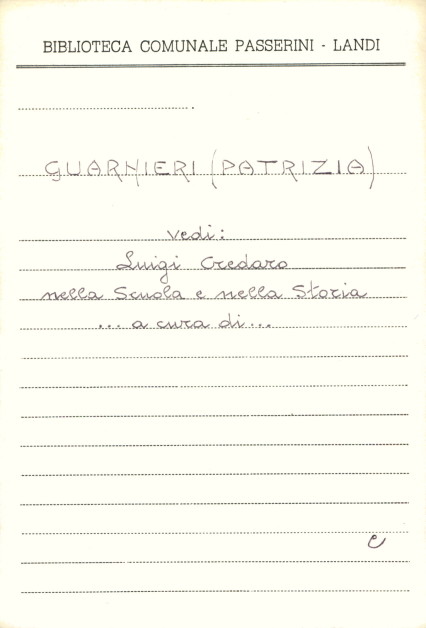 BIBLIOTECA COMUNALE PASSERINI - LANDI
GUARNIERI (PATRIZIA)
vedi:
Luigi Credaro
nella Scuola e nella Storia
... a cura di ...
e